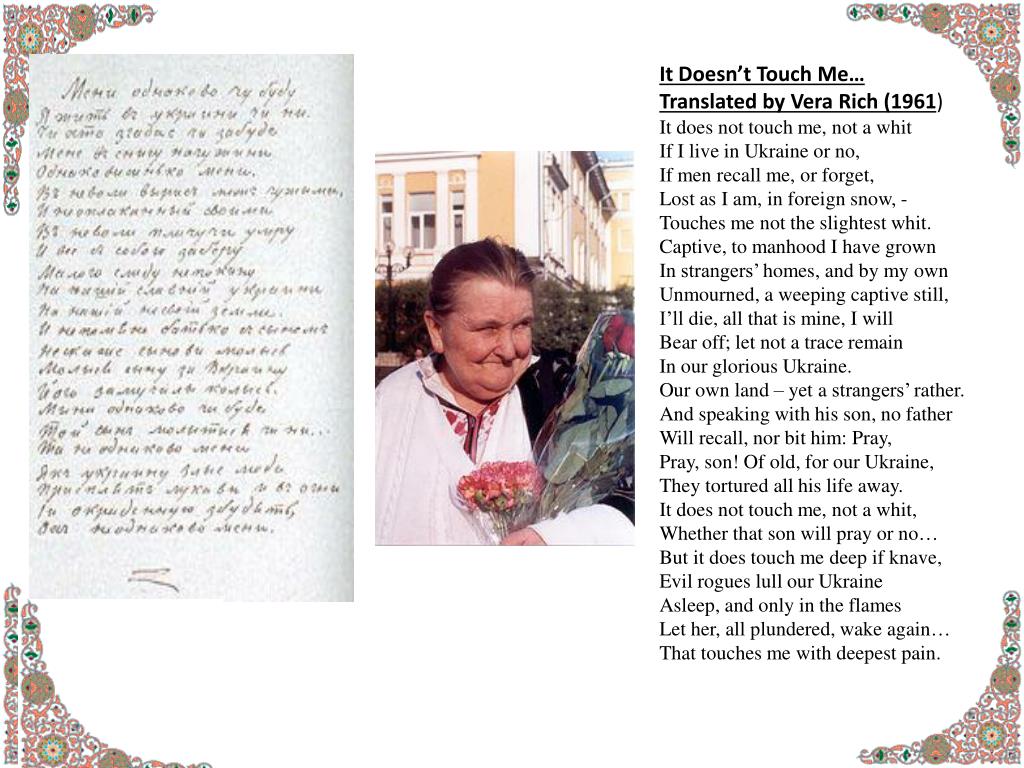 Мени однаково чу буду
Я жить въ украини чи ни.
Чи хто згадае чи забуде
Мене въ снигу на чужини
Однаковисинько мени.
Въ неволи вырисъ межъ чужыми,
И неоплаканный своими
Въ неволи плачучи умру
И все съ собою заберу
Малого слиду непокину
На нашій славній украини
На нашій несвоій земли.
И непомяне батько съ сыномъ
Нескаже сынови молысь
Молысь сыну за Вкраину
Його замучылы колысь.
Мени однаково чи буде
Той сынъ молытысь чи ни...
Та неоднаково мени
Якъ украину злые люде
Присплять лукави и въ огни
Іи окраденую збудять,
Охъ неоднаково мени.
It Doesn’t Touch Me…
Translated by Vera Rich (1961)
It does not touch me, not a whit
If I live in Ukraine or no,
If men recall me, or forget,
Lost as I am, in foreign snow, -
Touches me not the slightest whit.
Captive, to manhood I have grown
In strangers’ homes, and by my own
Unmourned, a weeping captive still,
I’ll die, all that is mine, I will
Bear off; let not a trace remain
In our glorious Ukraine.
Our own land – yet a strangers’ rather.
And speaking with his son, no father
Will recall, nor bit him: Pray,
Pray, son! Of old, for our Ukraine,
They tortured all his life away.
It does not touch me, not a whit,
Whether that son will pray or no…
But it does touch me deep if knave,
Evil rogues lull our Ukraine
Asleep, and only in the flames
Let her, all plundered, wake again…
That touches me with deepest pain.